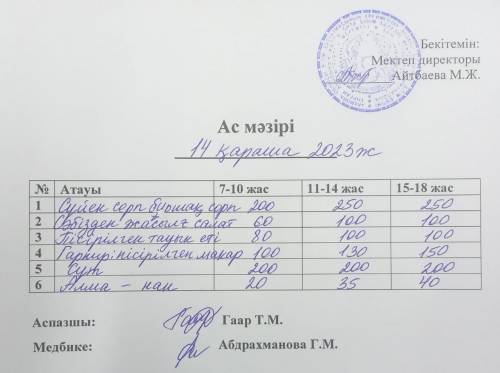 Бекітемін:
Мектеп директоры
Айтбаева М.Ж.
Ас мәзірі
14 қараша 2023ж
№ Атауы 7-10 жас 11-14 жас 15-18 жас
1 Сүйек сорп бұршақ сорп 200 250 250
2 Сәбізден жасалғ салат 60 100 100
3 Пісірілген тауық еті 80 100 100
4 Гарнир: пісірілген макар 100 130 150
5 Сүт 200 200 200
6 Алма – нан 20 35 40
Аспазшы: Гаар Т.М.
Медбике: Абдрахманова Г.М.